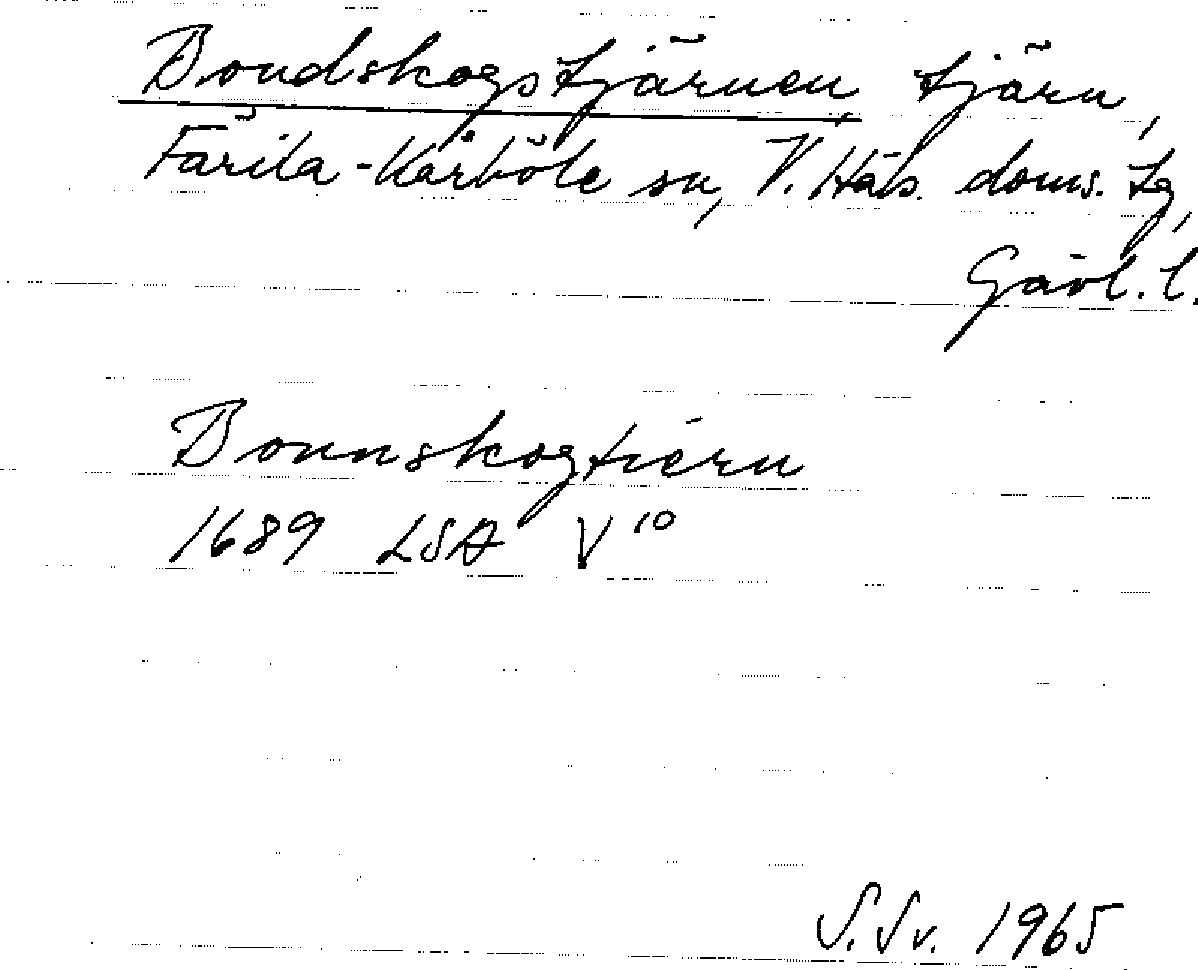 Bondskogstjärnen tjärn,
Färila-Kårböle sn, V. Häls. doms. tg,
Gävl. l.
Bonnskogtiérn
1689 LSA V 10
S. Sv. 1965